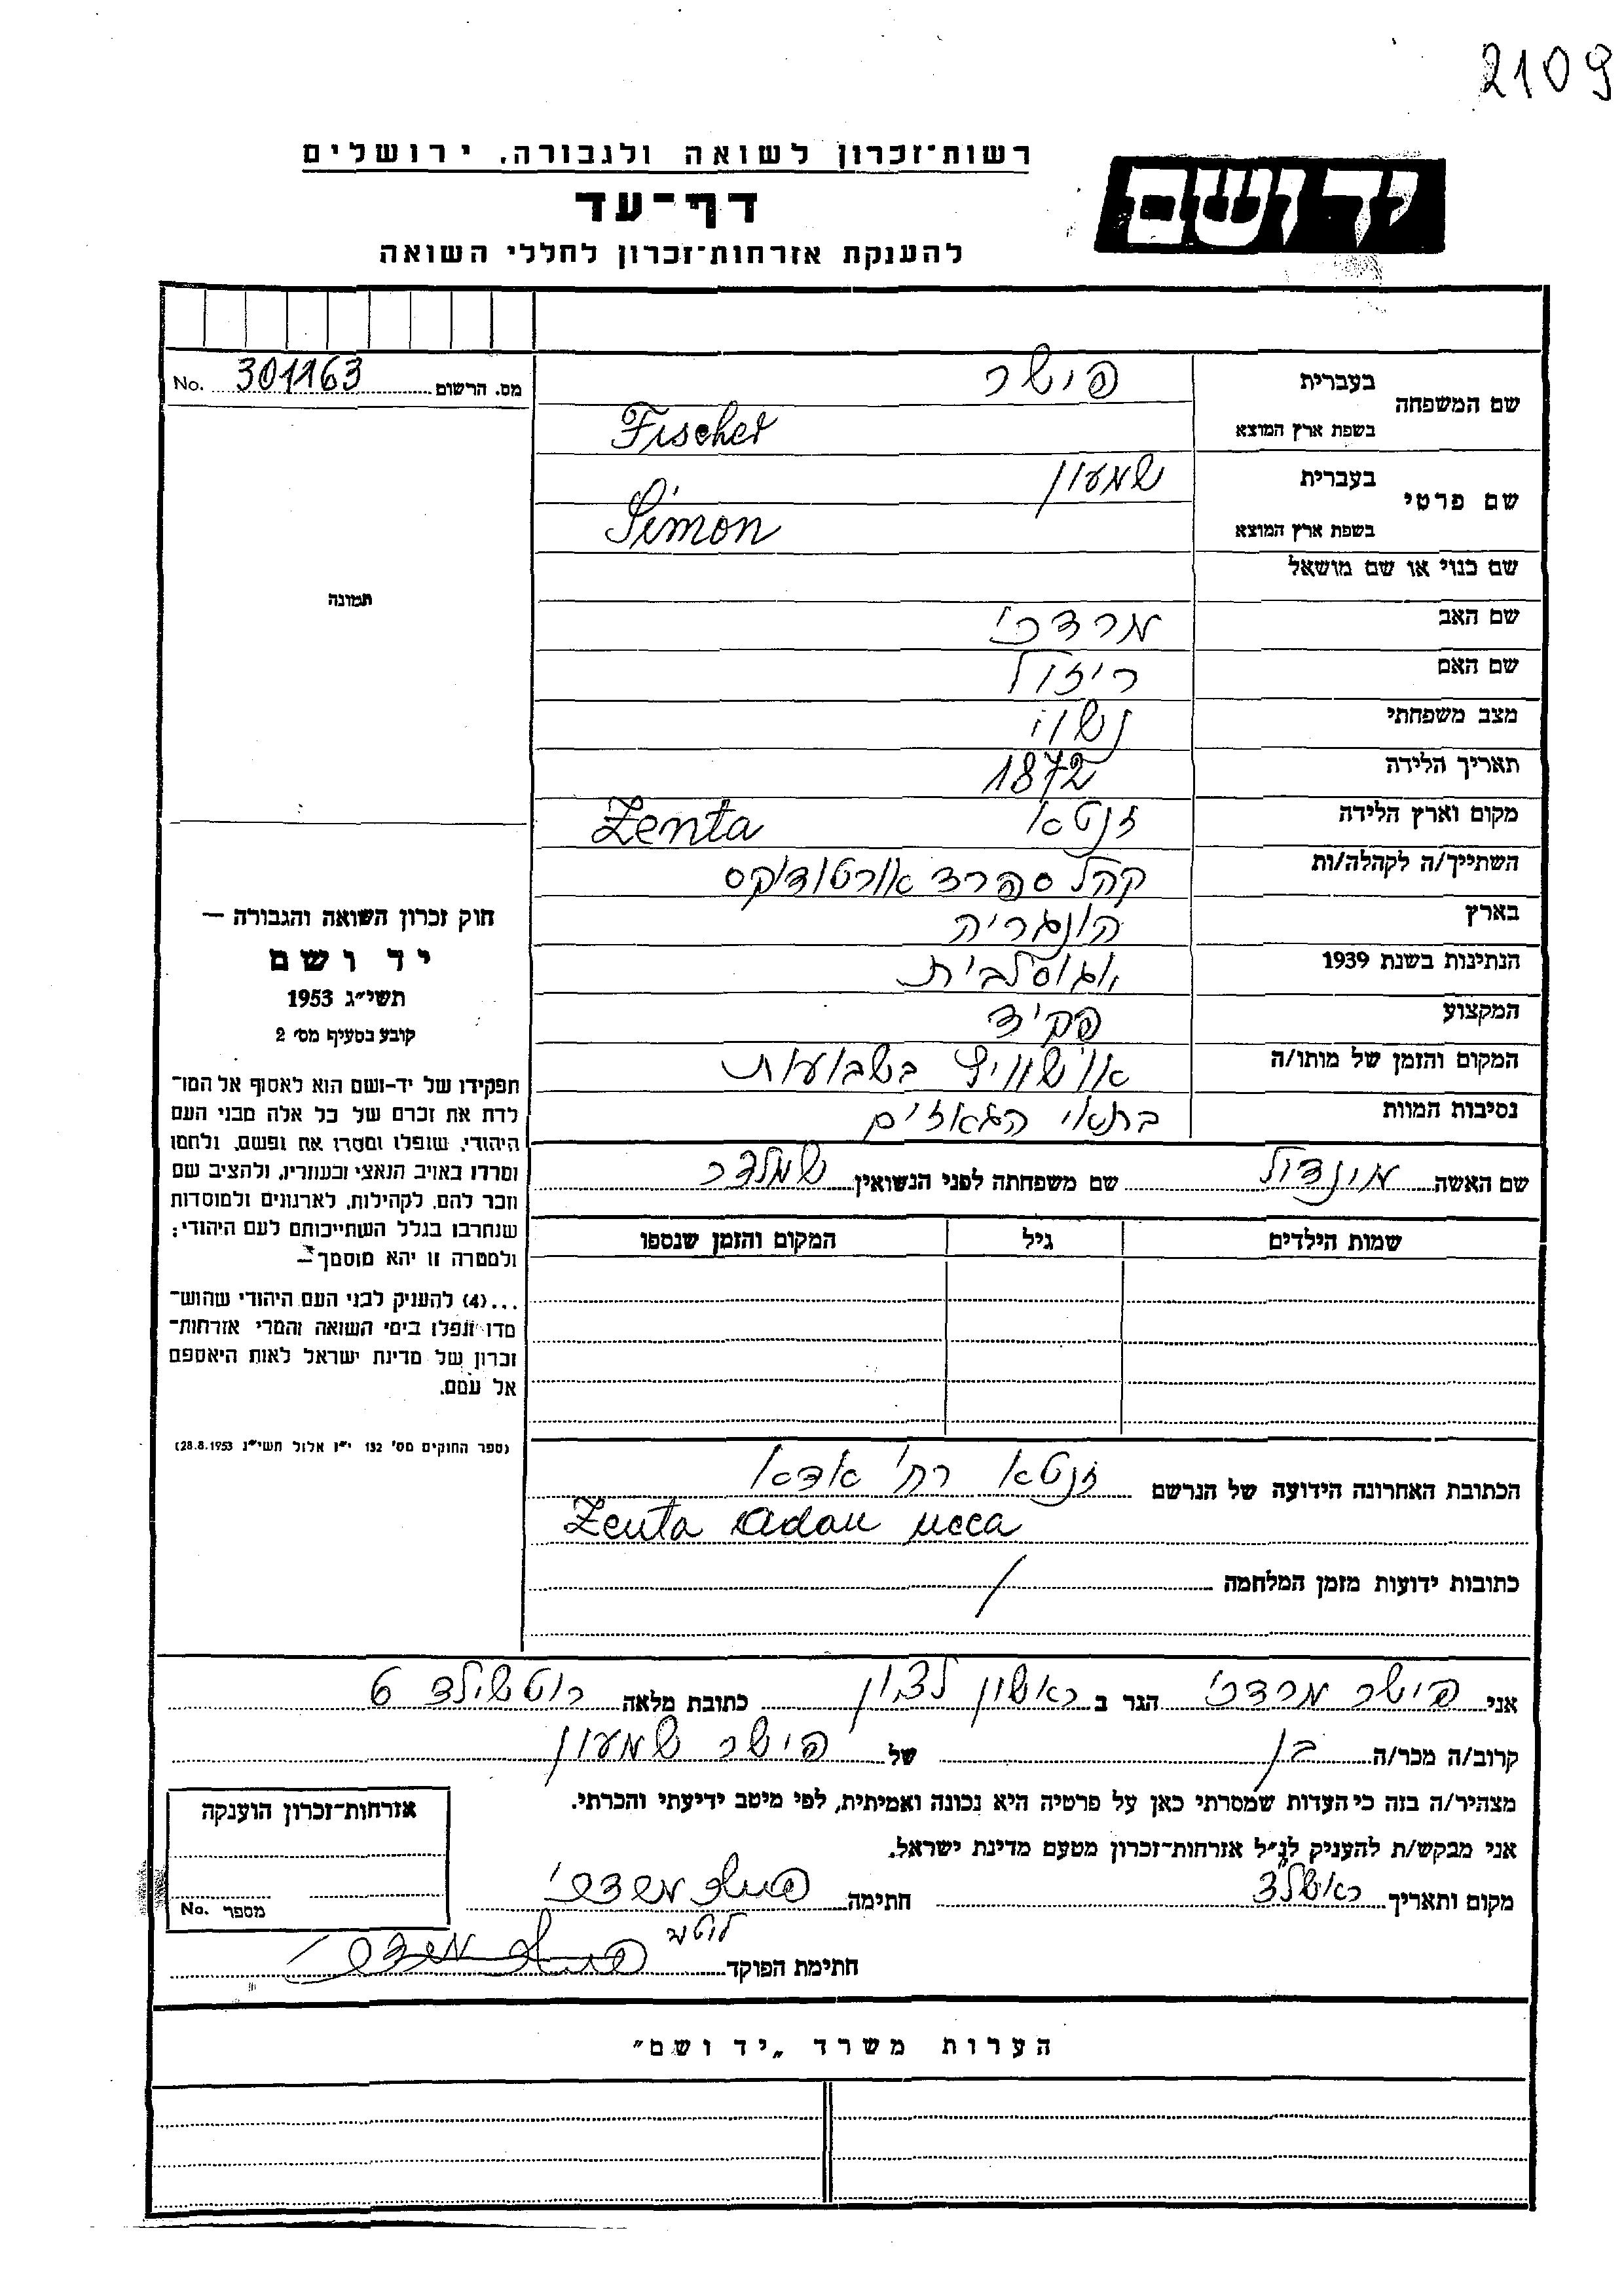 2109
יד ושם
רשות־זכרון לשואה ולגבורה, ירושלים
דף־עד
להענקת אזרחות־זכרון לחללי השואה
מס. הרשום 301163 No.
שם המשפחה בעברית פישר
בשפת ארץ המוצא Fischer
שם פרטי בעברית שמעון
בשפת ארץ המוצא Simon
שם כנוי או שם מושאל
שם האב מרדכי
שם האם רייזל
מצב משפחתי נשוי
תאריך הלידה 1872
מקום וארץ הלידה זנטא Zenta
השתייך/ה לקהלה/ות קהל ספרד אורטודוקס
בארץ הונגריה
הנתינות בשנת 1939 יוגוסלבית
המקצוע פקיד
המקום והזמן של מותו/ה אושוויץ בשבועות
נסיבות המוות בתאי הגאזים
שם האשה שם משפחתה לפני הנשואין
שמות הילדים גיל המקום והזמן שנספו
תמונה
חוק זכרון השואה והגבורה —
יד ושם
תשי״ג 1953
קובע בסעיף מס׳ 2
תפקידו של יד-ושם הוא לאסוף אל המו־
לדת את זכרם של כל אלה מבני העם
היהודי, שנפלו ומסרו את נפשם, נלחמו
ומרדו באויב הנאצי ובעוזריו, ולהציב שם
וזכר להם, לקהילות, לארגונים ולמוסדות
שנחרבו בגלל השתייכותם לעם היהודי;
ולמטרה זו יהא מוסמך —
...(4) להעניק לבני העם היהודי שהוש־
מדו ונפלו בימי השואה והמרי אזרחות־
זכרון של מדינת ישראל לאות היאספם
אל עמם.
(ספר החוקים מס׳ 132 י״ז אלול תשי״ג 28.8.1953)
הכתובת האחרונה הידועה של הנרשם זנטא רח׳ אדא
Zenta Adau ucca
כתובות ידועות מזמן המלחמה /
אני פישר מרדכי הגר ב ראשון לציון כתובת מלאה רוטשילד 6
קרוב/ה מכר/ה בן של פישר שמעון
מצהיר/ה בזה כי העדות שמסרתי כאן על פרטיה היא נכונה ואמיתית, לפי מיטב ידיעתי והכרתי.
אני מבקש/ת להעניק לנ״ל אזרחות־זכרון מטעם מדינת ישראל.
מקום ותאריך ראשל״צ חתימה פישר מרדכי
חתימת הפוקד פישר מרדכי
אזרחות־זכרון הוענקה
מספר No.
הערות משרד „יד ושם״